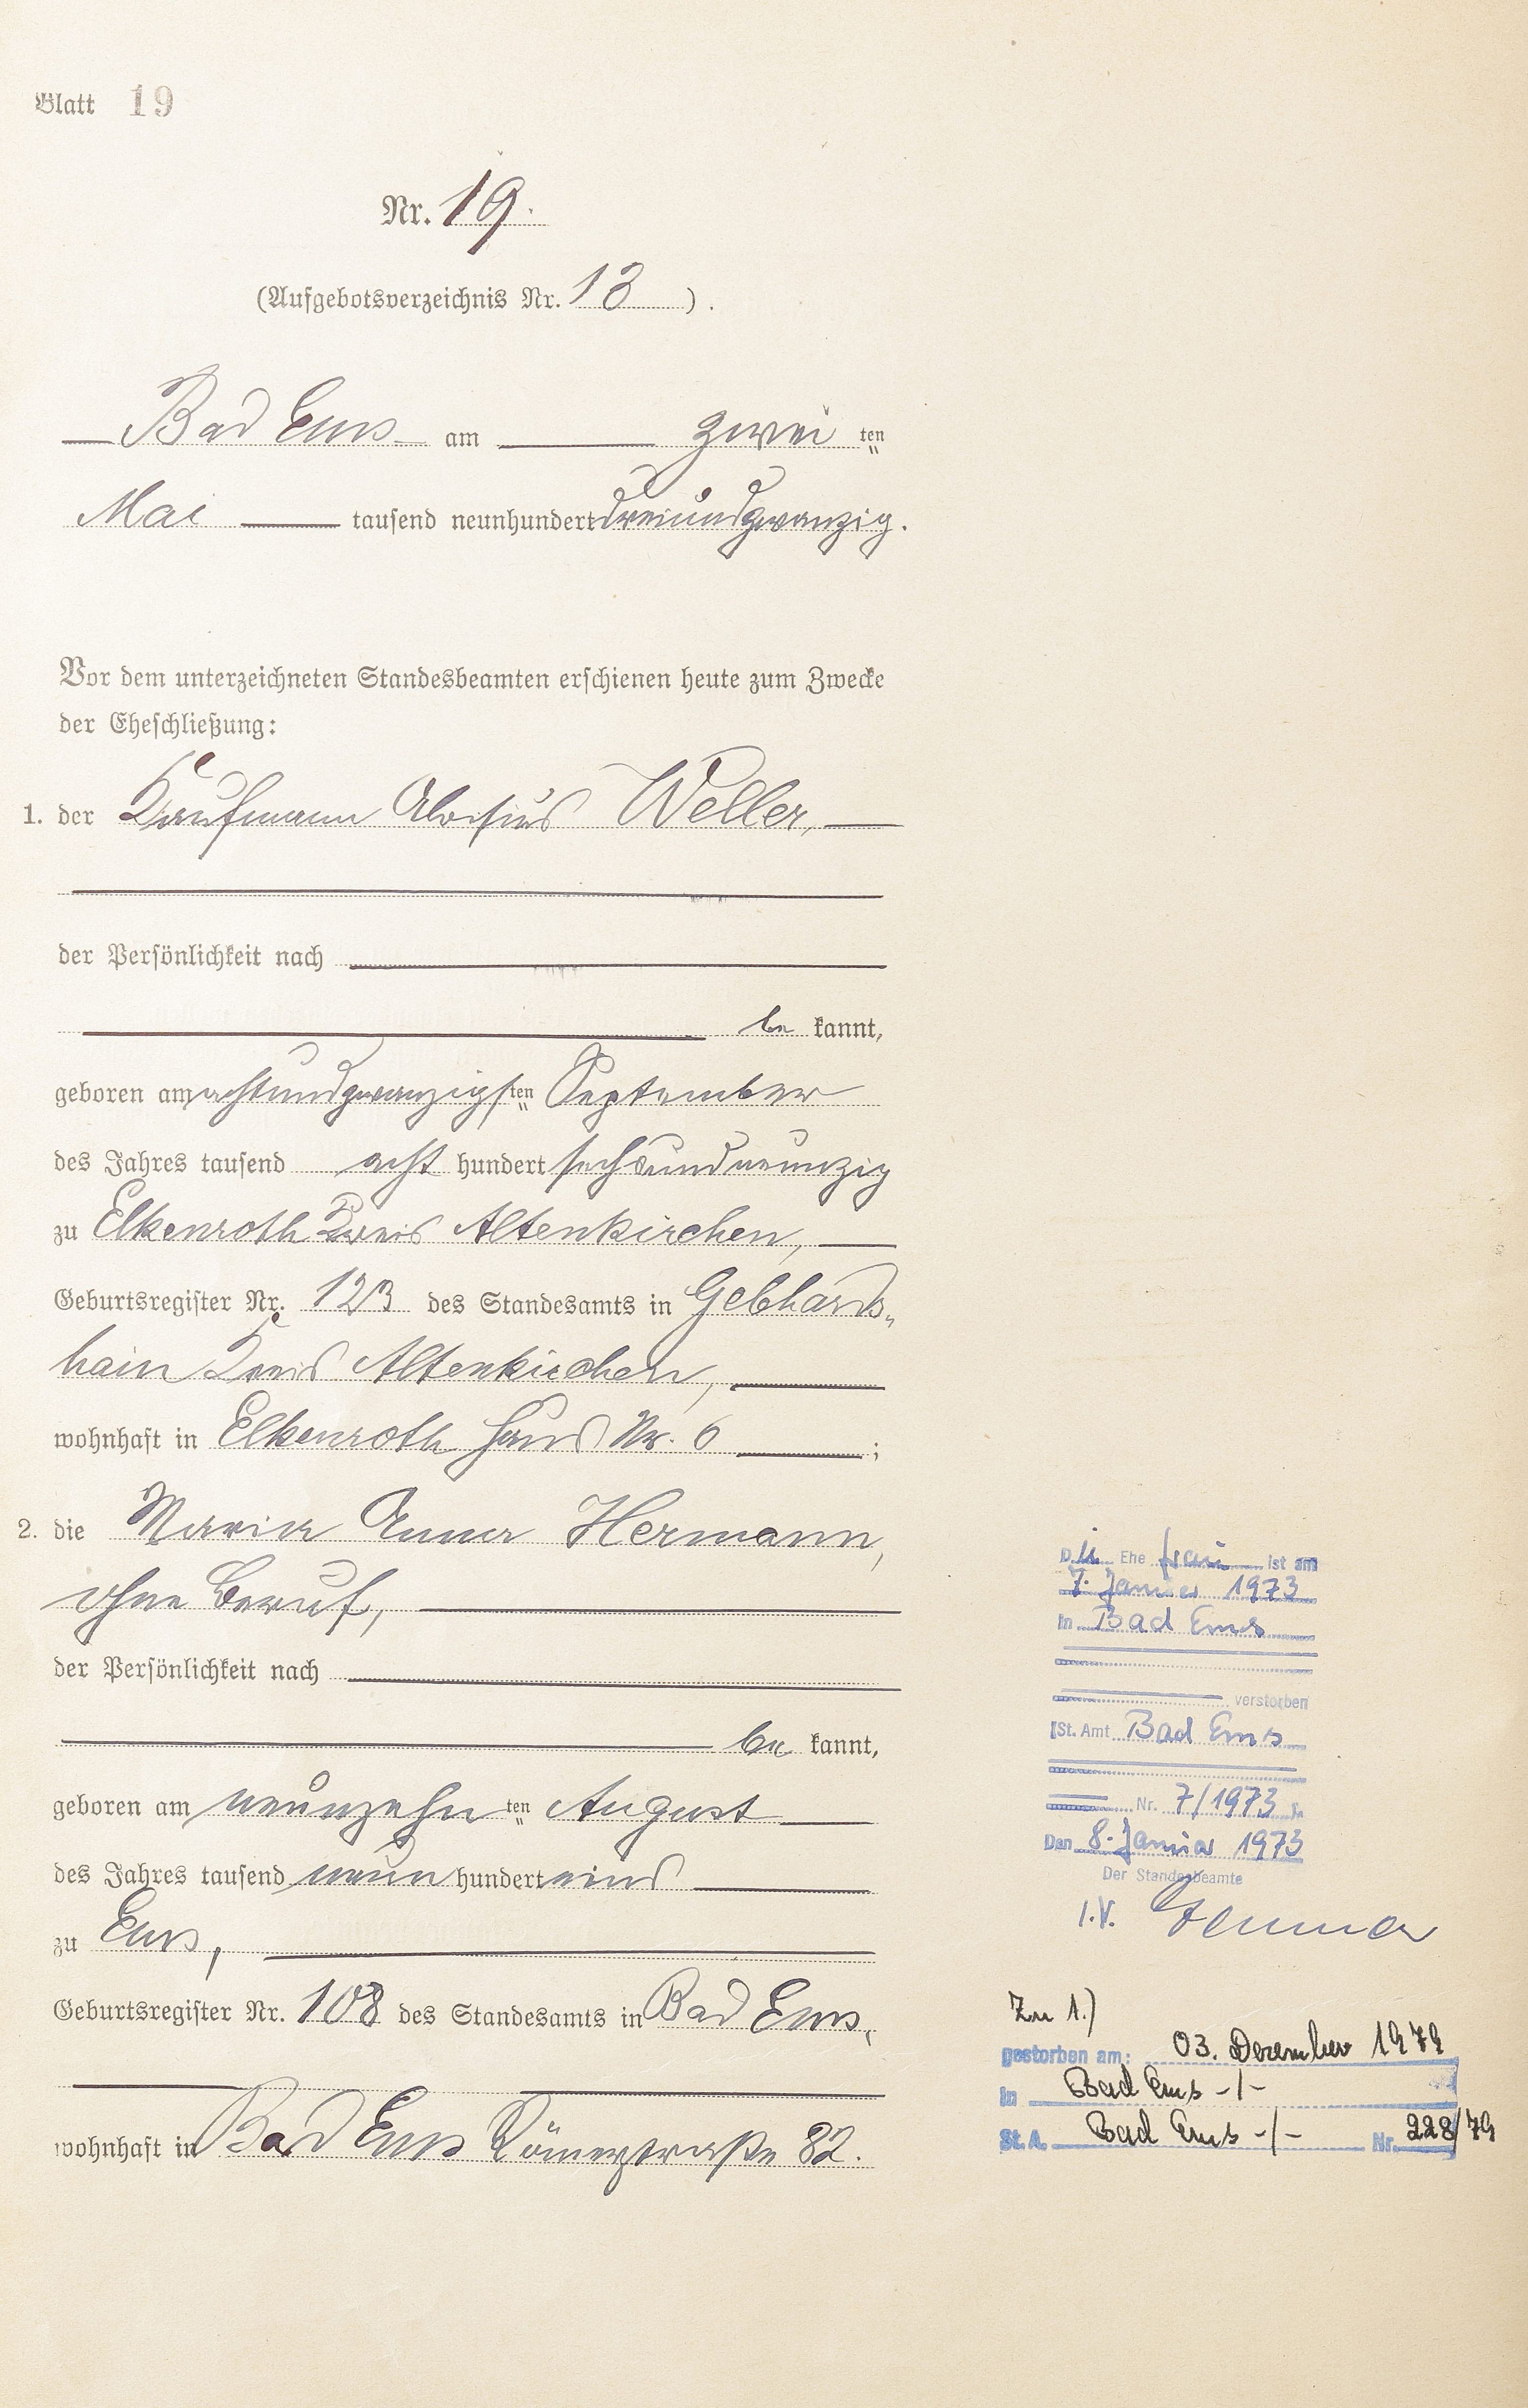 Blatt 19
Nr. 19.
(Aufgebotsverzeichnis Nr. 13).
Bad Ems am zweiten
Mai tausend neunhundert dreiundzwanzig.
Vor dem unterzeichneten Standesbeamten erschienen heute zum Zwecke
der Eheschließung:
1. der Kaufmann Aloisius Weller,
der Persönlichkeit nach
be kannt,
geboren am achtundzwanzigsten September
des Jahres tausend acht hundert sechsundneunzig
zu Elkenroth Kreis Altenkirchen,
Geburtsregister Nr. 123 des Standesamts in Gebhards-
hain Kreis Altenkirchen,
wohnhaft in Elkenroth Haus Nr. 6 ;
2. die Maria Anna Hermann,
ohne Beruf,
der Persönlichkeit nach
be kannt,
geboren am neunzehnten August
des Jahres tausend neun hundert eins
zu Ems,
Geburtsregister Nr. 108 des Standesamts in Bad Ems,
wohnhaft in Bad Ems Römerstraße 82.
Die Ehe frau ist am
7. Januar 1973
in Bad Ems
verstorben
St. Amt Bad Ems
Nr. 7/1973
Den 8. Januar 1973
Der Standesbeamte
I.V.
Zu 1.)
gestorben am: 03. Dezember 1979
in Bad Ems -/-
St. A. Bad Ems -/- Nr. 228/79